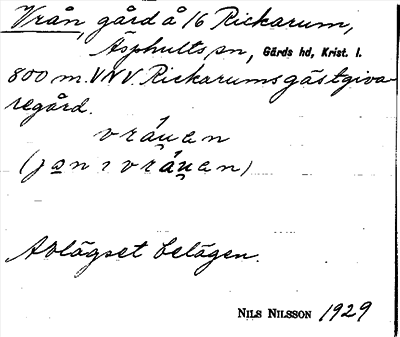 Vrån, gård å 16 Rickarum,
Äsphults sn, Gärds hd, Krist. l.
800 m. VNV. Rickarums gästgiva-
regård.
vráu̯en
(jan i vráu̯en)
Avlägset belägen.
NILS NILSSON 1929